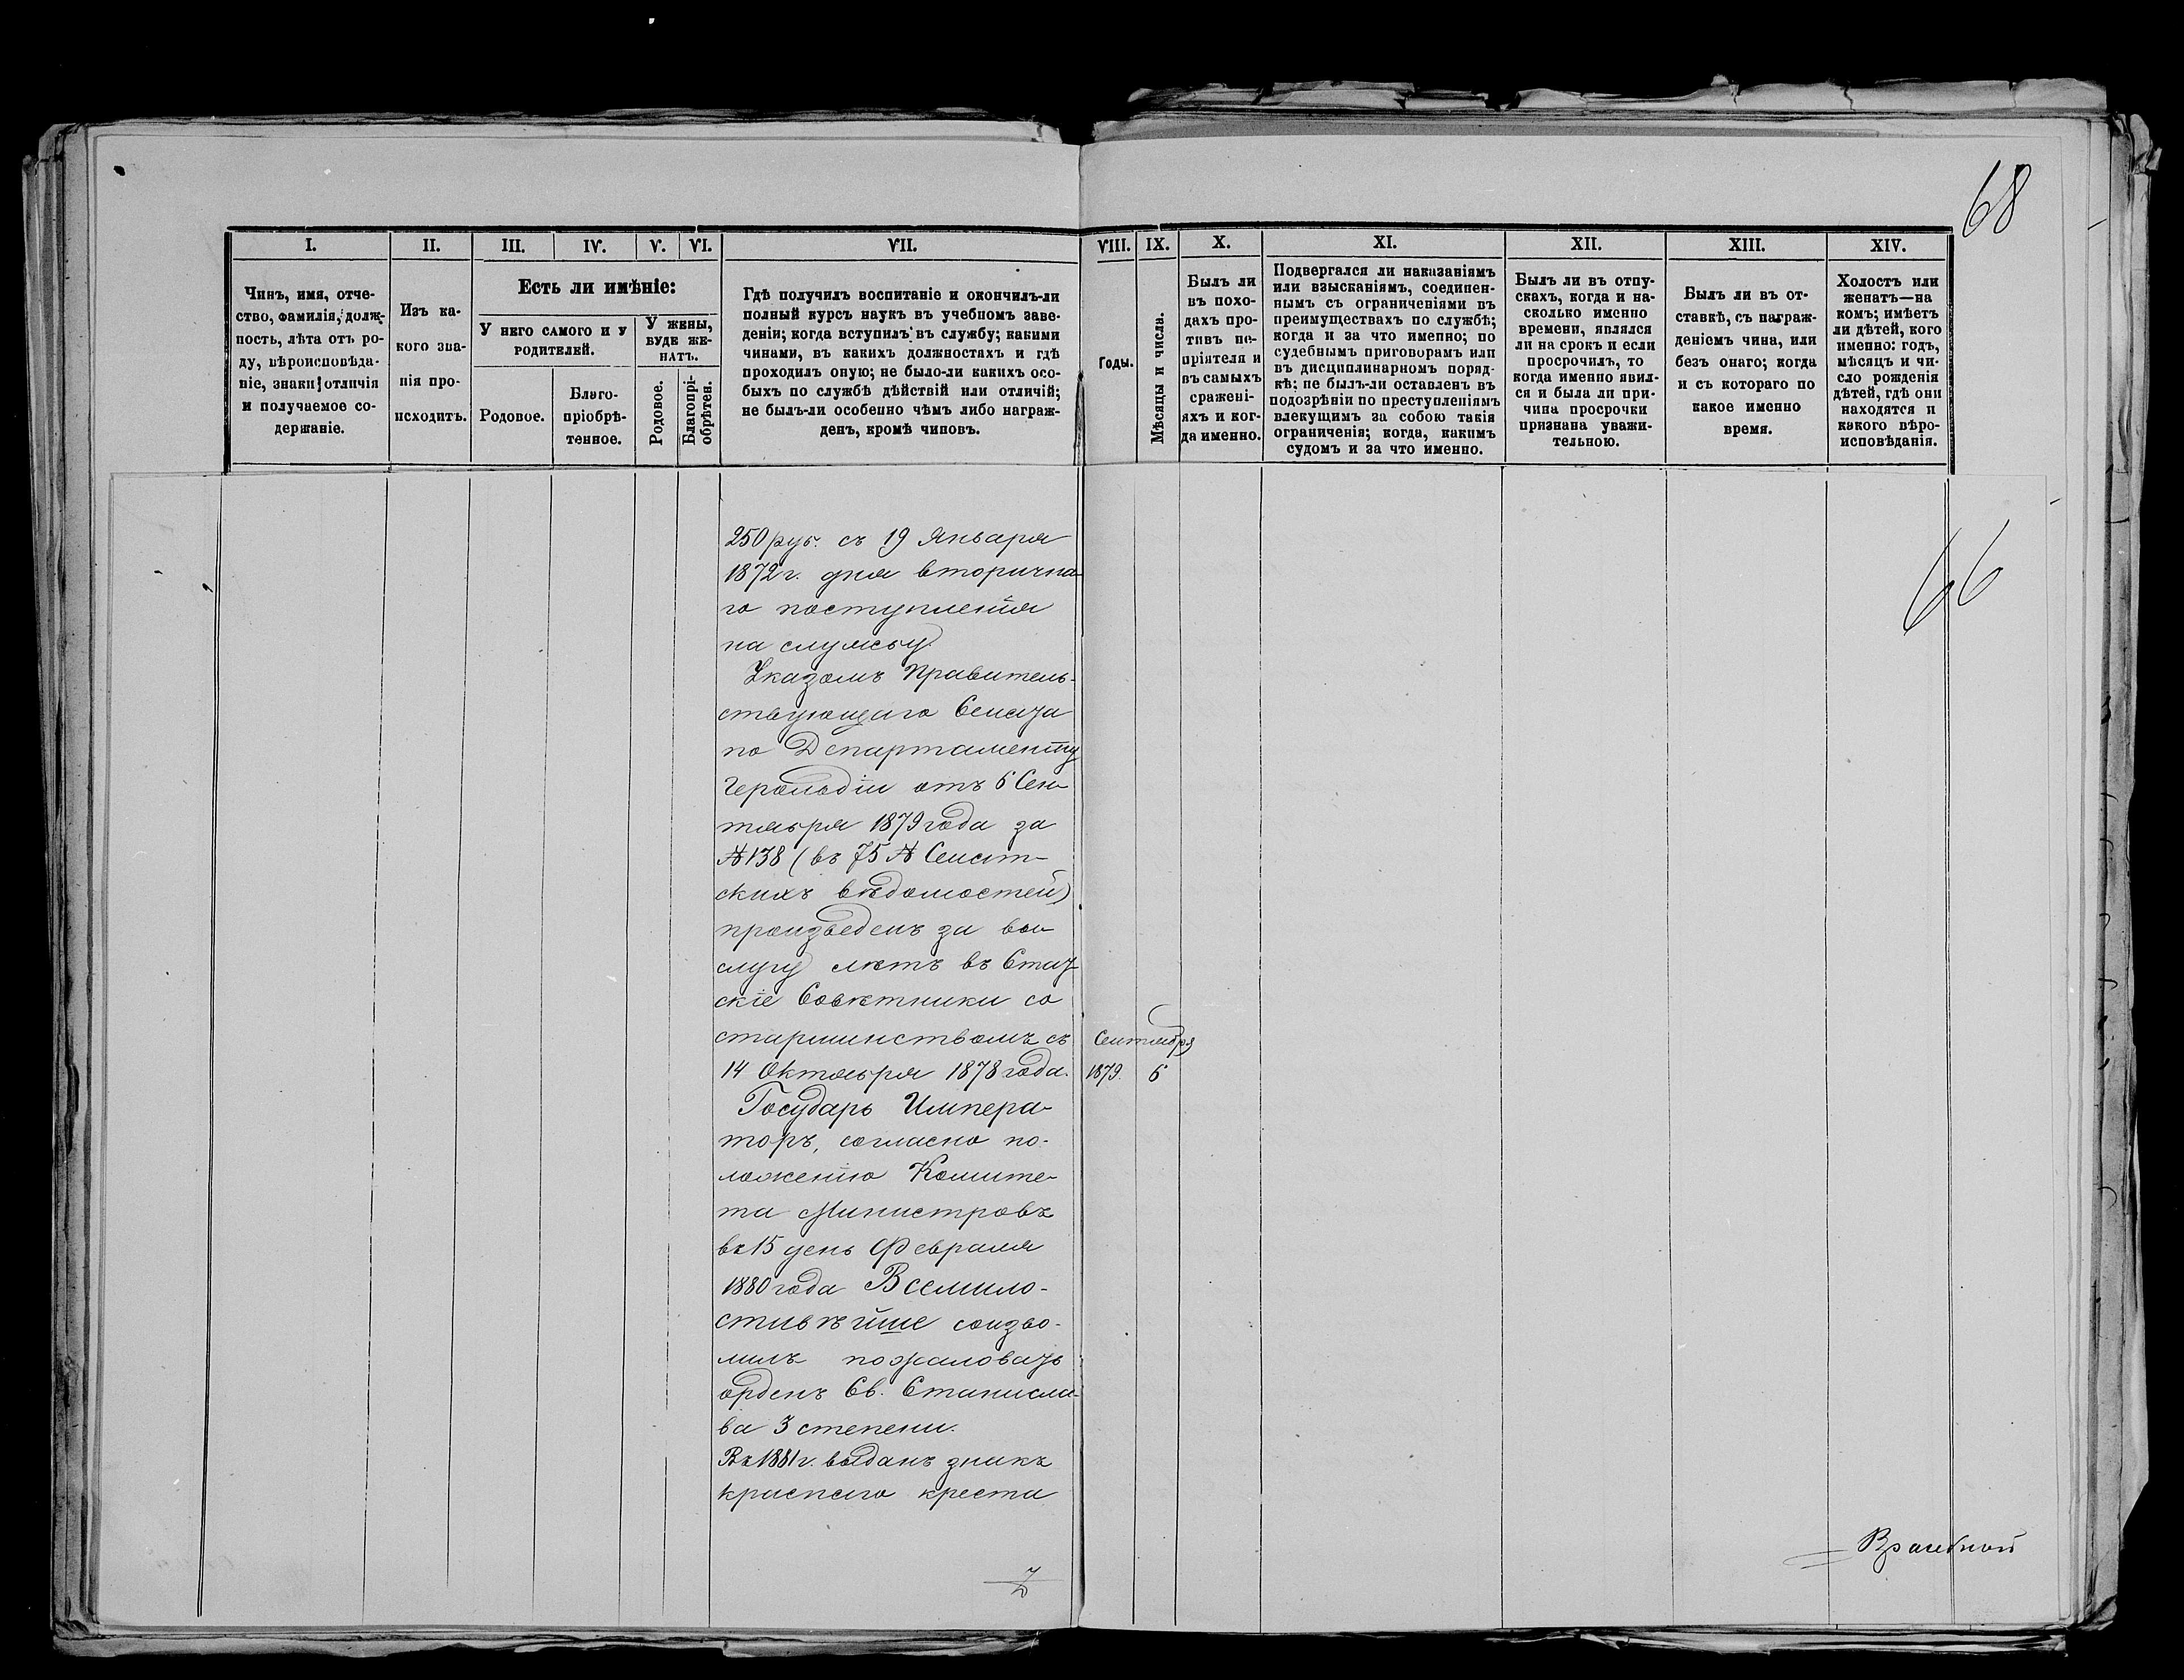 68
I.
II.
III.
IV.
V.
VI.
VII.
VIII.
IX.
X.
XI.
XII.
XIII.
XIV.
Чинъ, имя, отче-
ство, фамилія, долж-
ность, лѣта отъ ро-
ду, вѣроисповѣда-
ніе, знаки отличія
и получаемое со-
держаніе.
Изъ ка-
кого зва-
нія про-
исходитъ.
Есть ли имѣніе:
У него самого и у
родителей.
У жены,
буде же-
натъ.
Родовое.
Благо-
пріобрѣ-
тенное.
Родовое.
Благопрі-
обрѣтен.
Гдѣ получилъ воспитаніе и окончилъ-ли
полный курсъ наукъ въ учебномъ заве-
деніи; когда вступилъ въ службу; какими
чинами, въ какихъ должностяхъ и гдѣ
проходилъ оную; не было-ли какихъ осо-
быхъ по службѣ дѣйствій или отличій;
не былъ-ли особенно чѣмъ либо награж-
денъ, кромѣ чиновъ.
Годы.
Мѣсяцы и числа.
Былъ ли
въ похо-
дахъ про-
тивъ не-
пріятеля и
въ самыхъ
сражені-
яхъ и ког-
да именно.
Подвергался ли наказаніямъ
или взысканіямъ, соединен-
нымъ съ ограниченіями въ
преимуществахъ по службѣ;
когда и за что именно; по
судебнымъ приговорамъ или
въ дисциплинарномъ поряд-
кѣ; не былъ-ли оставленъ въ
подозрѣніи по преступленіямъ
влекущимъ за собою такія
ограниченія; когда, какимъ
судомъ и за что именно.
Былъ ли въ отпу-
скахъ, когда и на-
сколько именно
времени, являлся
ли на срокъ и если
просрочилъ, то
когда именно явил-
ся и была ли при-
чина просрочки
признана уважи-
тельною.
Былъ ли въ от-
ставкѣ, съ награж-
деніемъ чина, или
безъ онаго; когда
и съ котораго по
какое именно
время.
Холостъ или
женатъ—на
комъ; имѣетъ
ли дѣтей, кого
именно: годъ,
мѣсяцъ и чи-
сло рожденія
дѣтей, гдѣ они
находятся и
какого вѣро-
исповѣданія.
250 руб. съ 19 Января
1872 г. дня вторична-
го поступленія
на службу.
Указомъ Правитель-
ствующаго Сената
по Департаменту
Герольдіи отъ 6 Сен-
тября 1879 года за
№ 138 (въ 75 № Сенат-
скихъ вѣдомостей)
произведенъ за вы-
слугу лѣтъ въ Стат-
скіе Совѣтники со
старшинствомъ съ
14 Октября 1878 года.
Государь Импера-
торъ, согласно по-
ложенію Комите-
та Министровъ
въ 15 день Февраля
1880 года Всемило-
стивѣйше соизво-
лилъ пожаловать
орденъ Св. Станисла-
ва 3 степени.
Въ 1881 г. выданъ знакъ
краснаго креста
Сентября
1879. 6
66